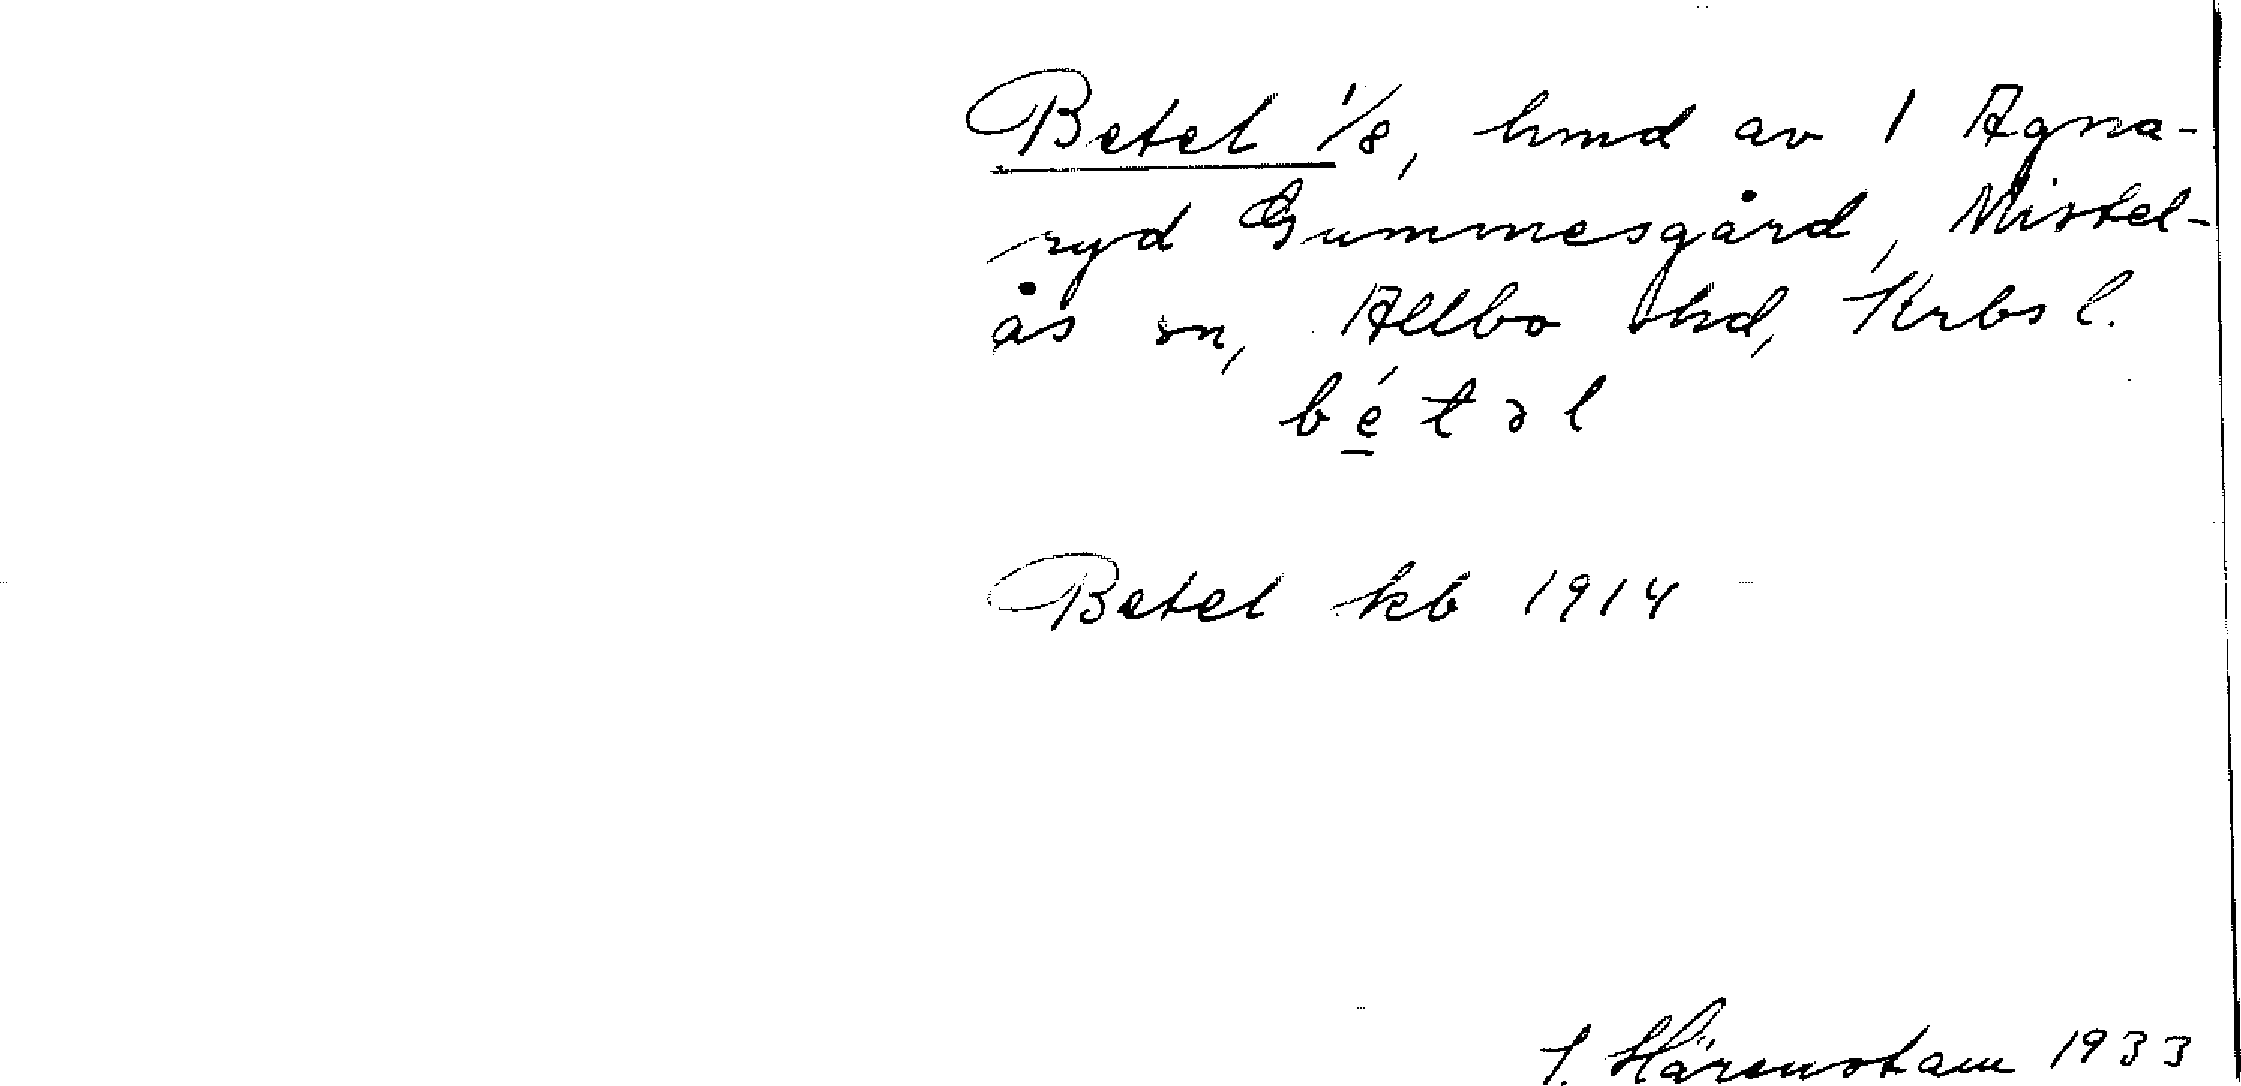 Betel 1/8, hmd av 1 Agna-
ryd Gummesgård, Mistel-
ås sn, Allbo hd, Krbs l.
bétəl
Betel kb 1914
Härenstam 1933